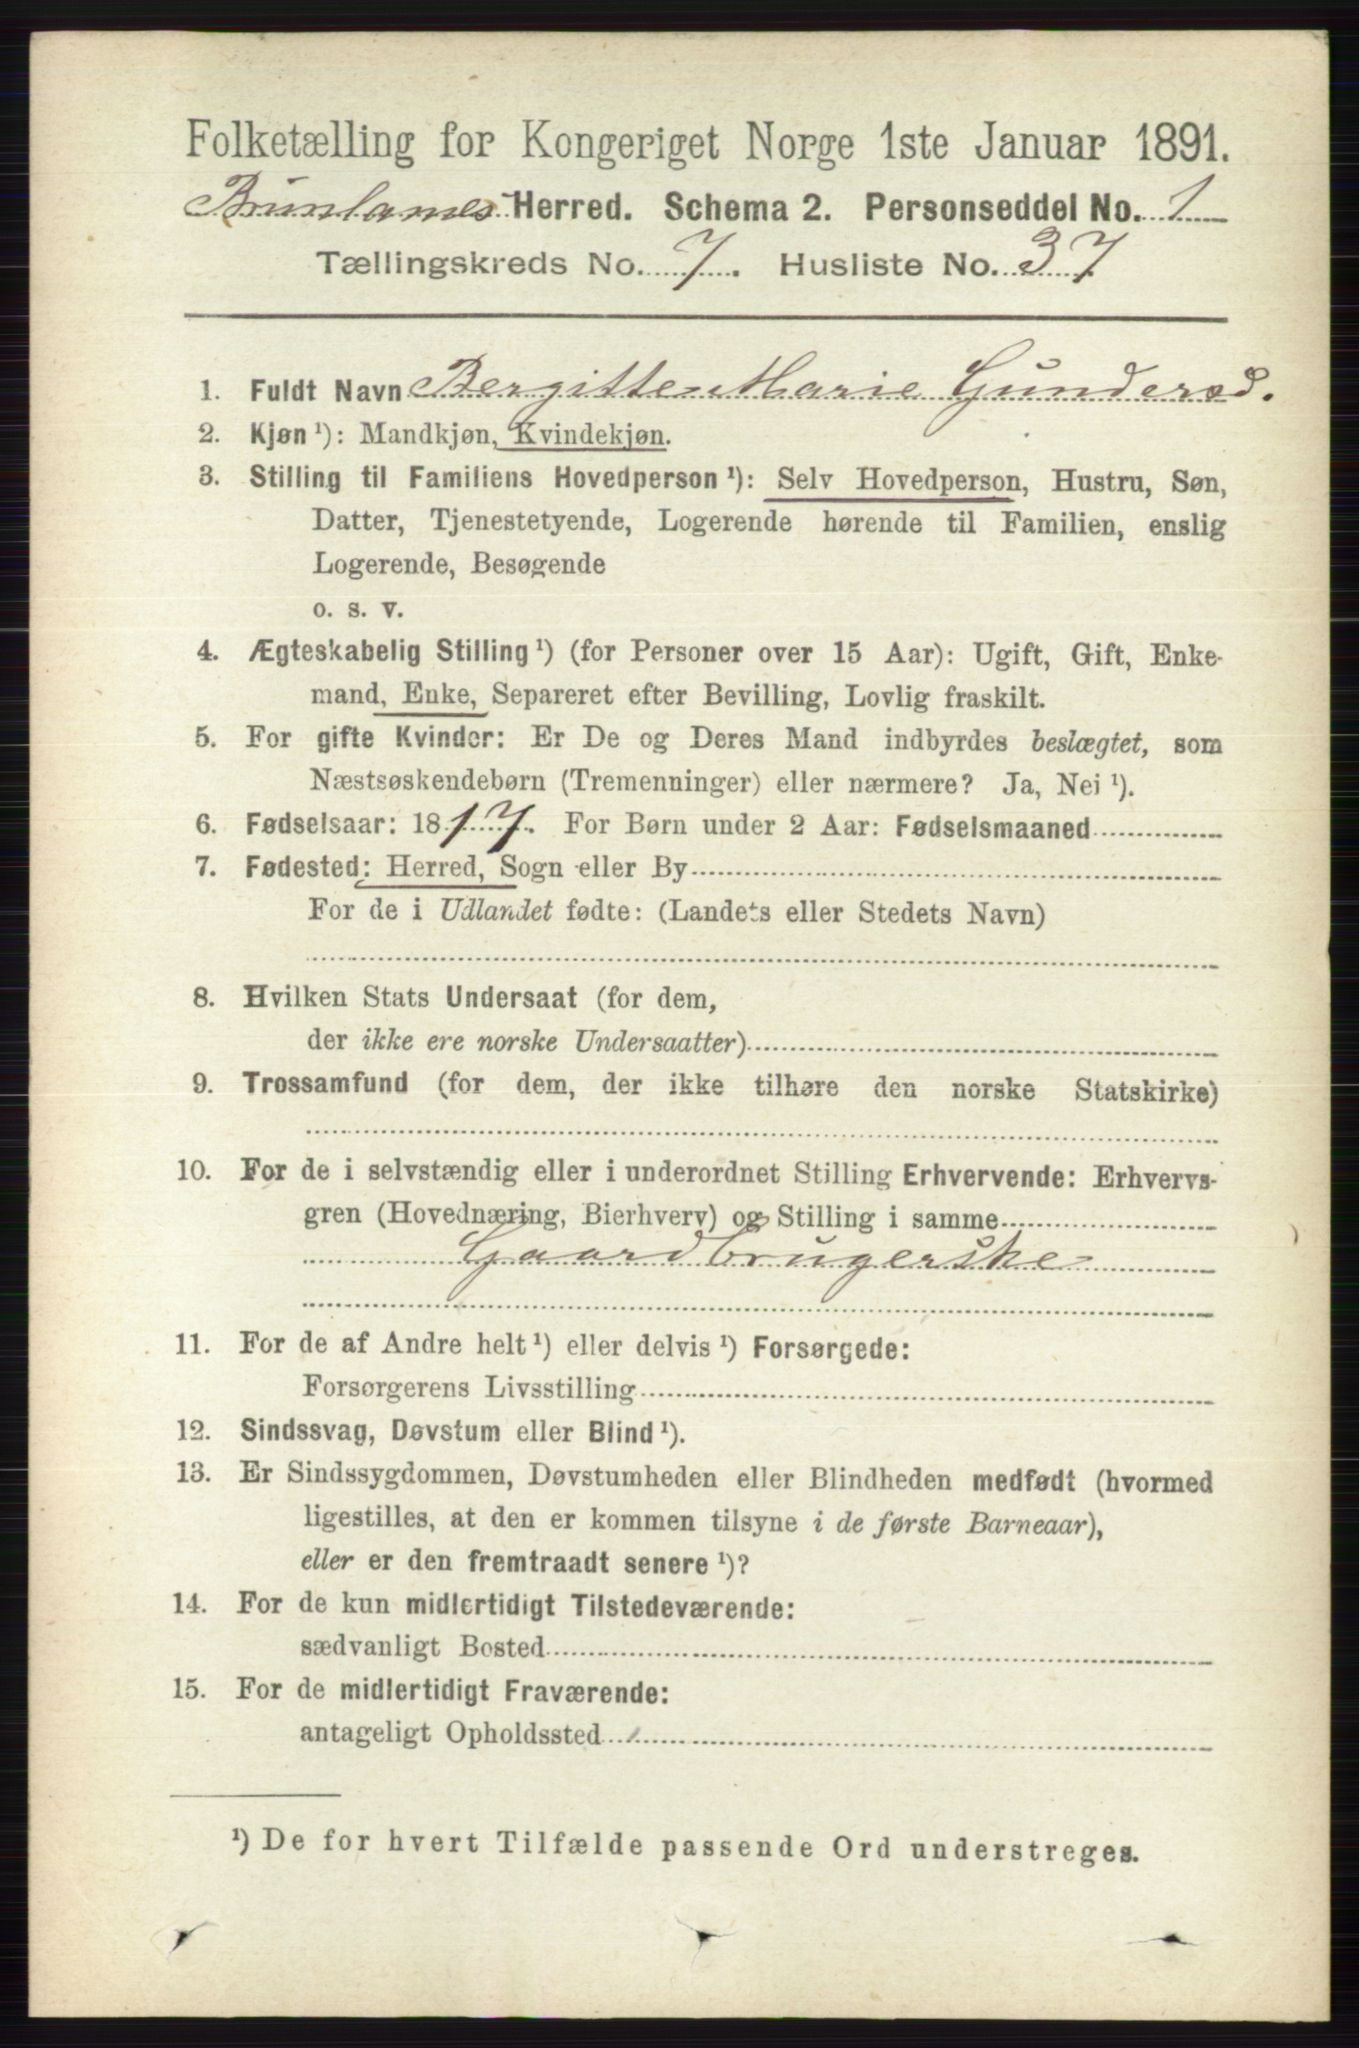 Folketælling for Kongeriget Norge 1ste Januar 1891.
Brunlanes Herred. Schema 2. Personseddel No. 1
Tællingskreds No. 7. Husliste No. 37
1. Fuldt Navn Bergitte Marie Gundersd.
2. Kjøn ¹): Mandkjøn, Kvindekjøn.
3. Stilling til Familiens Hovedperson ¹): Selv Hovedperson, Hustru, Søn,
Datter, Tjenestetyende, Logerende hørende til Familien, enslig
Logerende, Besøgende
o. s. v.
4. Ægteskabelig Stilling ¹) (for Personer over 15 Aar): Ugift, Gift, Enke-
mand, Enke, Separeret efter Bevilling, Lovlig fraskilt.
5. For gifte Kvinder: Er De og Deres Mand indbyrdes beslægtet, som
Næstsøskendebørn (Tremenninger) eller nærmere? Ja, Nei ¹).
6. Fødselsaar: 1817. For Børn under 2 Aar: Fødselsmaaned
7. Fødested: Herred, Sogn eller By
For de i Udlandet fødte: (Landets eller Stedets Navn)
8. Hvilken Stats Undersaat (for dem,
der ikke ere norske Undersaatter)
9. Trossamfund (for dem, der ikke tilhøre den norske Statskirke)
10. For de i selvstændig eller i underordnet Stilling Erhvervende: Erhvervs-
gren (Hovednæring, Bierhverv) og Stilling i samme
Gaardbrugerske
11. For de af Andre helt ¹) eller delvis ¹) Forsørgede:
Forsørgerens Livsstilling
12. Sindssvag, Døvstum eller Blind ¹).
13. Er Sindssygdommen, Døvstumheden eller Blindheden medfødt (hvormed
ligestilles, at den er kommen tilsyne i de første Barneaar),
eller er den fremtraadt senere ¹)?
14. For de kun midlertidigt Tilstedeværende:
sædvanligt Bosted
15. For de midlertidigt Fraværende:
antageligt Opholdssted
¹) De for hvert Tilfælde passende Ord understreges.